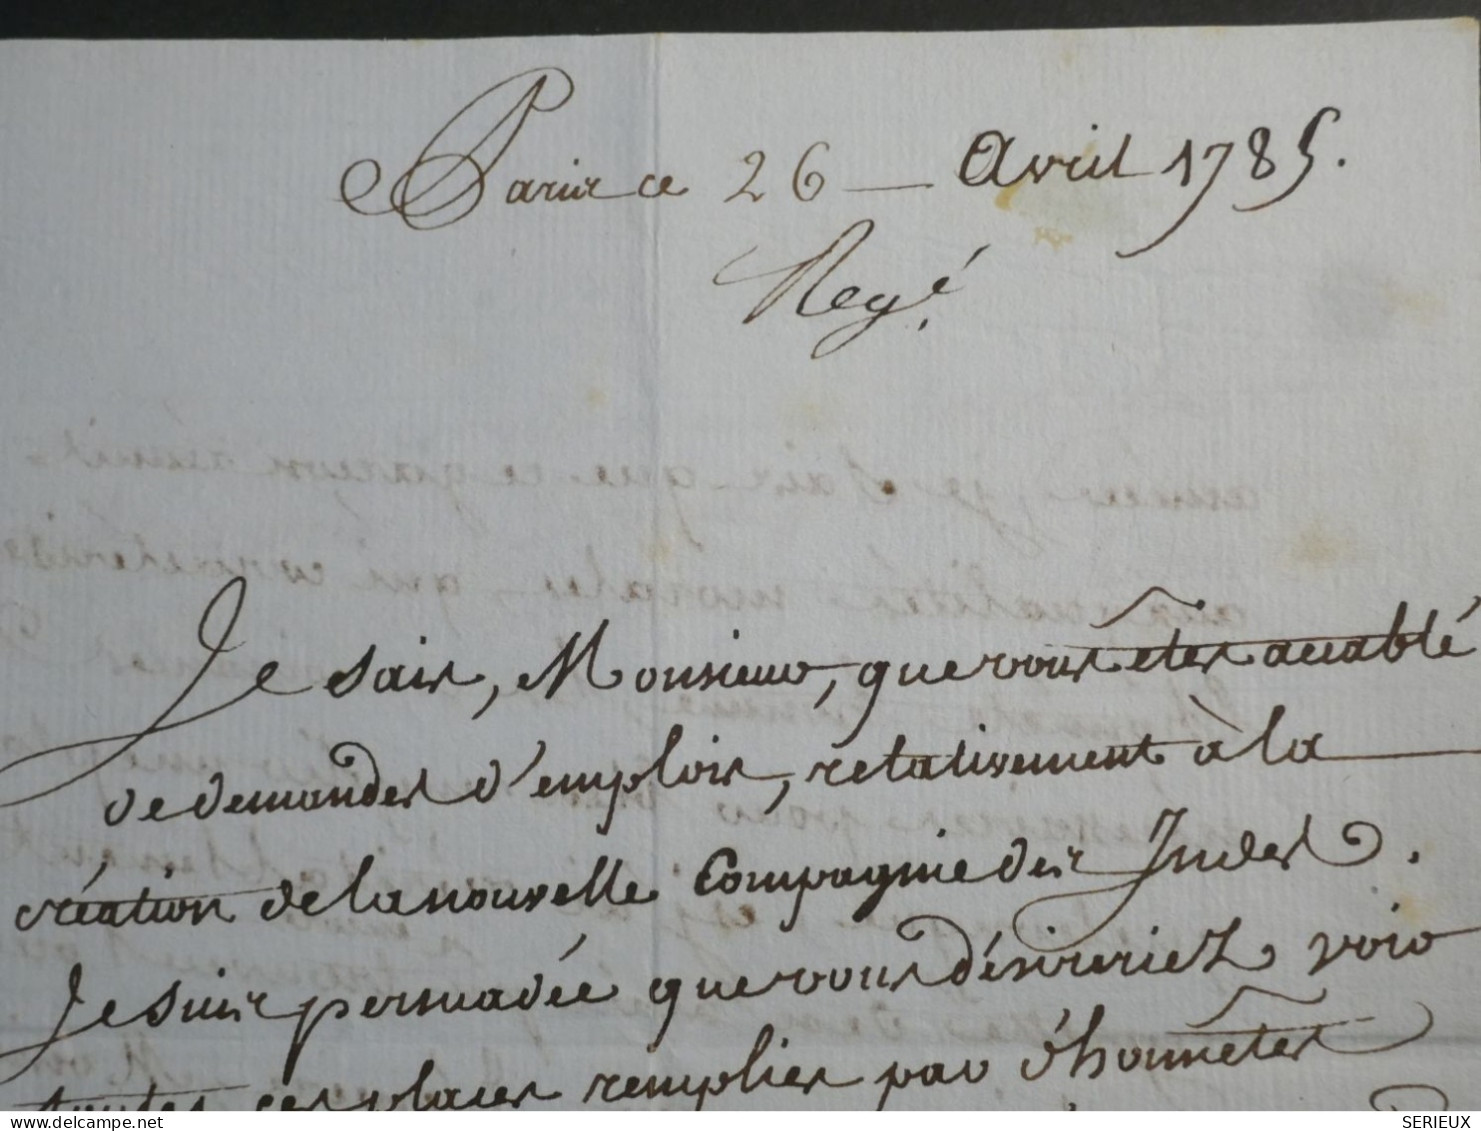 Paris ce 26 — Avril 1785.
Regé.
Je sais, Monsieur, que vous êtes accablé
de demandes d'emplois, relativement à la
création de la nouvelle Compagnie des Indes.
Je suis persuadée que vous désireriez voir
toutes ces places remplies par d'honnêtes
SERIEUX